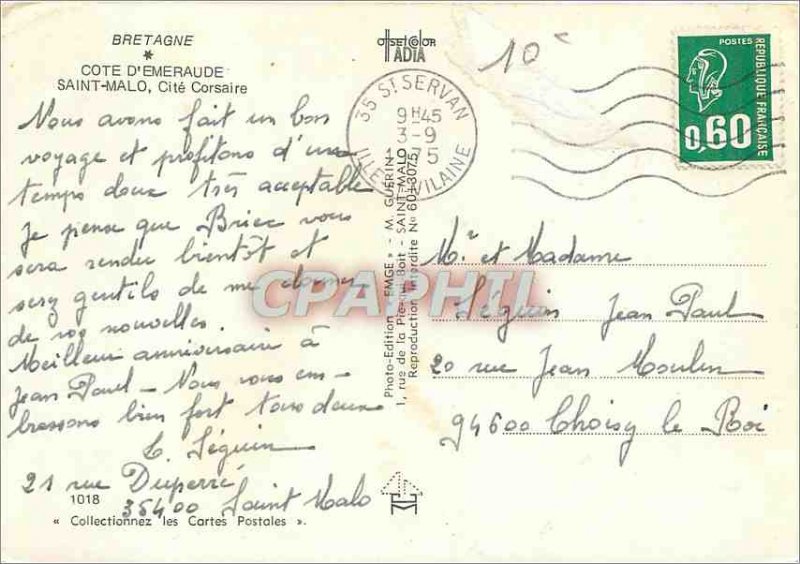 BRETAGNE
*
COTE D'EMERAUDE
SAINT-MALO, Cité Corsaire
Nous avons fait un bon
voyage et profitons d'un
temps doux très acceptable
Je pense que Briec vous
sera rendu bientôt et
serez gentils de me donner
de vos nouvelles.
Meilleur anniversaire à
Jean Paul - Nous vous em-
brassons bien fort tous deux
L. Séguin
21 rue Duperré
35400 Saint Malo
1018
« Collectionnez les Cartes Postales ».
OFFSETCOLOR
IADIA
10c
35 St SERVAN
9H45
3-9
ILLE VILAINE
POSTES
REPUBLIQUE FRANÇAISE
0,60
Photo-Edition « EMGE » - M. GUERIN
1, rue de la Pie qui Boit - SAINT-MALO
Reproduction Interdite N° 60+3075
CPAPHIL
Mr et Madame
Séguin Jean Paul
20 rue Jean Moulin
94600 Choisy le Roi